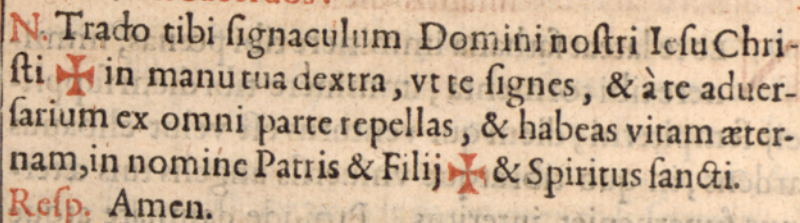 N. Trado tibi ſignaculum Domini noſtri Ieſu Chri-
ſti ✠ in manu tua dextra, vt te ſignes, & à te aduer-
ſarium ex omni parte repellas, & habeas vitam æter-
nam, in nomine Patris & Filij ✠ & Spiritus ſancti.
Reſp. Amen.